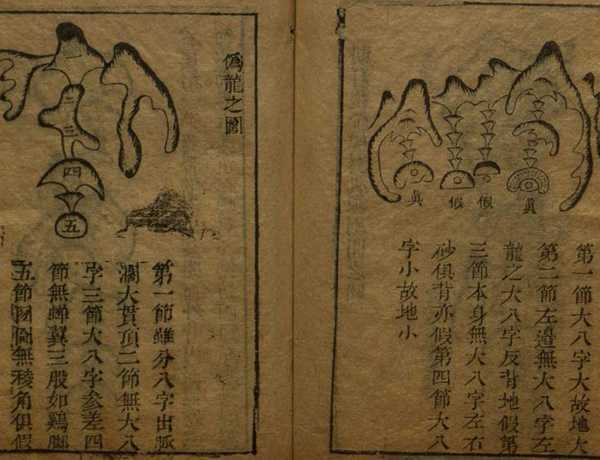 眞
假
假
眞
第一節大八字大故地大
第二節左邉無大八字左
龍之大八字反背地假第
三節本身無大八字左右
砂俱背亦假第四節大八
字小故地小
僞龍之圖
一
二
三
四
五
第一節雖分八字出脈
濶大貫頂二節無大八
字三節大八字參差四
節無蝉翼三股如鷄脚
五節無稜角俱假